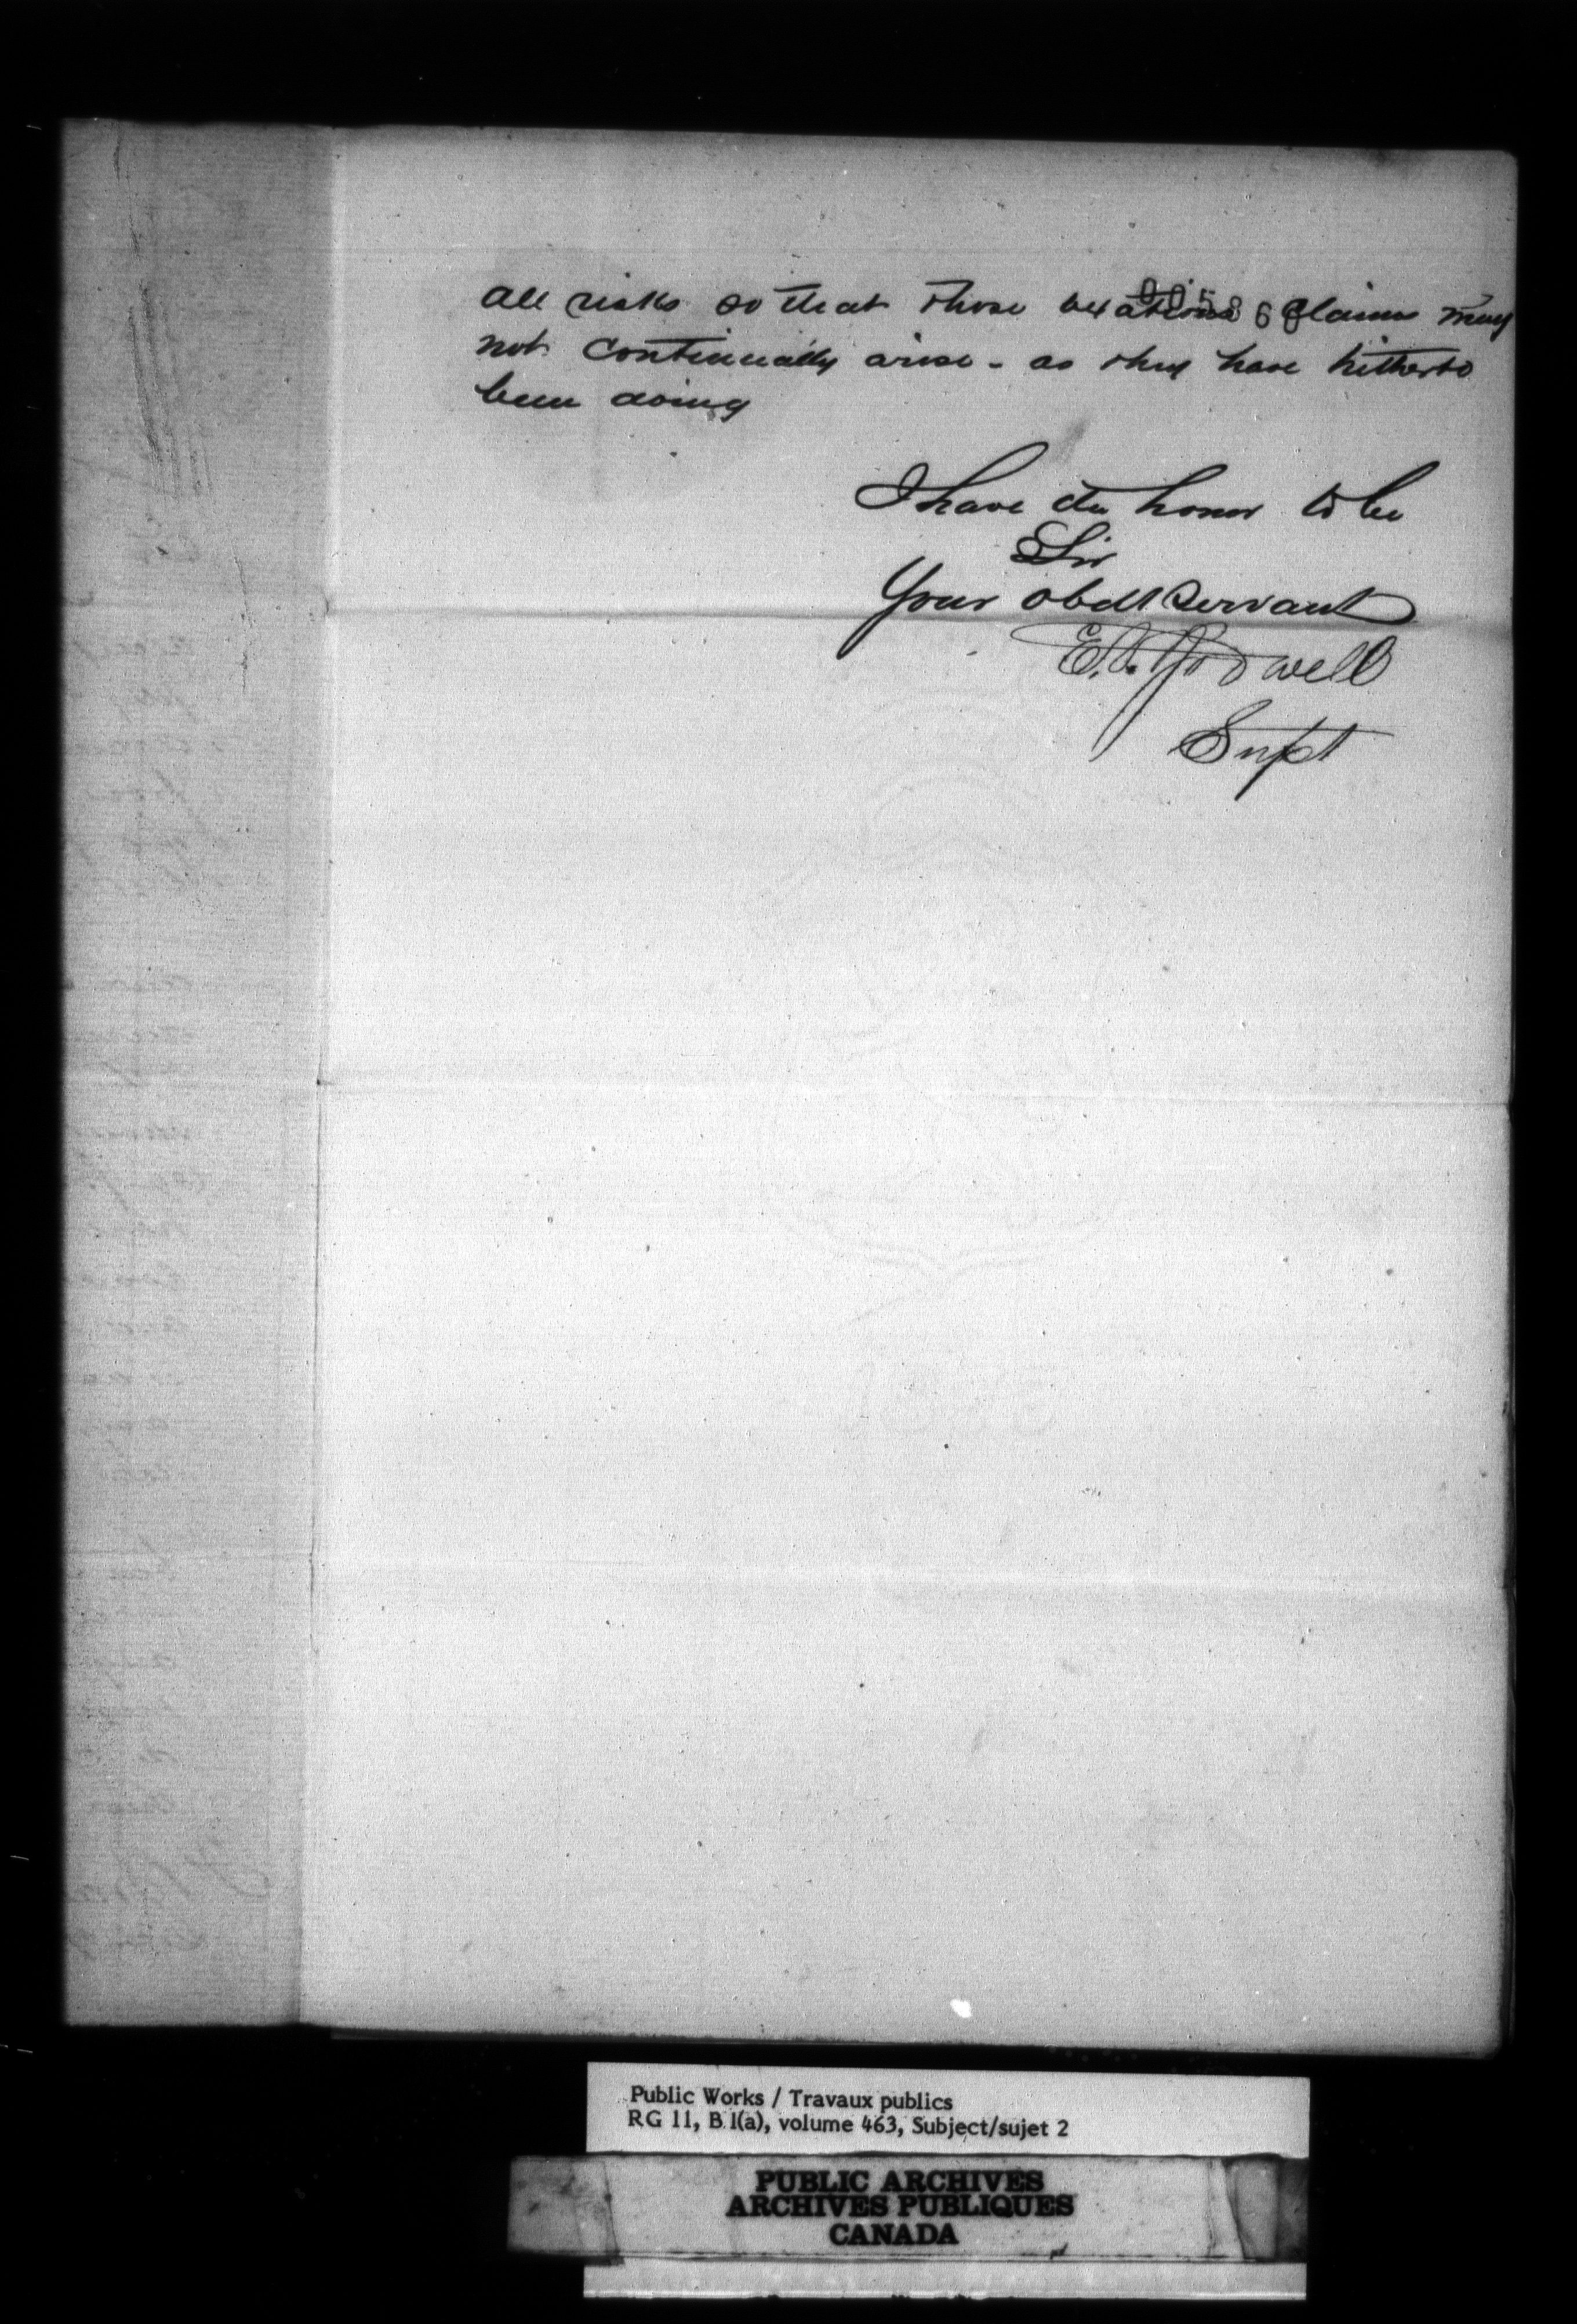 all risks so that those vexatious claims may
not continually arise - as they have hitherto
been doing
I have the honor to be
Sir
Your obdt Servant
Supt
Public Works / Travaux publics
RG 11, B 1(a), volume 463, Subject/sujet 2
PUBLIC ARCHIVES
ARCHIVES PUBLIQUES
CANADA